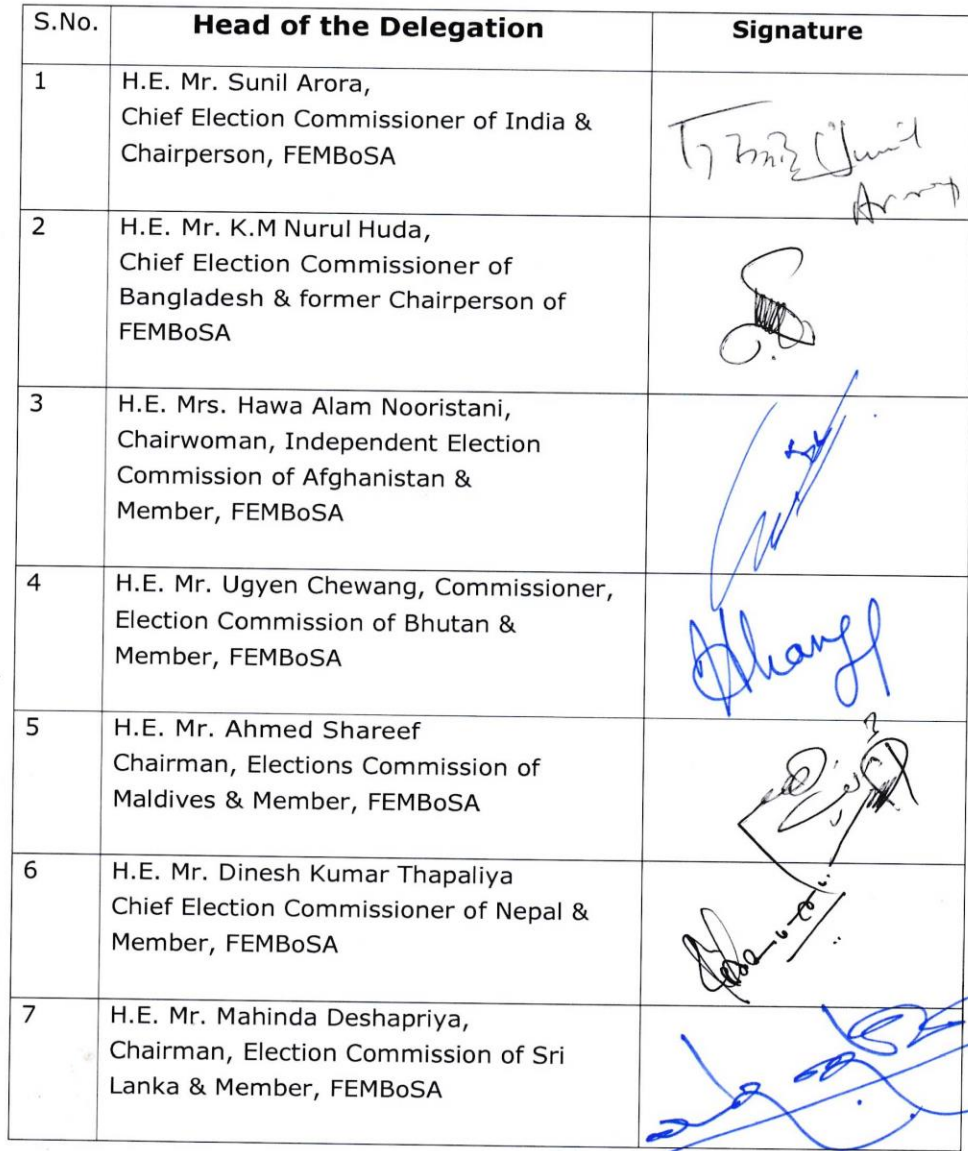 S.No. Head of the Delegation Signature
1 H.E. Mr. Sunil Arora,
Chief Election Commissioner of India &
Chairperson, FEMBoSA
Sunil
Arora
2 H.E. Mr. K.M Nurul Huda,
Chief Election Commissioner of
Bangladesh & former Chairperson of
FEMBoSA
3 H.E. Mrs. Hawa Alam Nooristani,
Chairwoman, Independent Election
Commission of Afghanistan &
Member, FEMBoSA
4 H.E. Mr. Ugyen Chewang, Commissioner,
Election Commission of Bhutan &
Member, FEMBoSA
5 H.E. Mr. Ahmed Shareef
Chairman, Elections Commission of
Maldives & Member, FEMBoSA
6 H.E. Mr. Dinesh Kumar Thapaliya
Chief Election Commissioner of Nepal &
Member, FEMBoSA
7 H.E. Mr. Mahinda Deshapriya,
Chairman, Election Commission of Sri
Lanka & Member, FEMBoSA